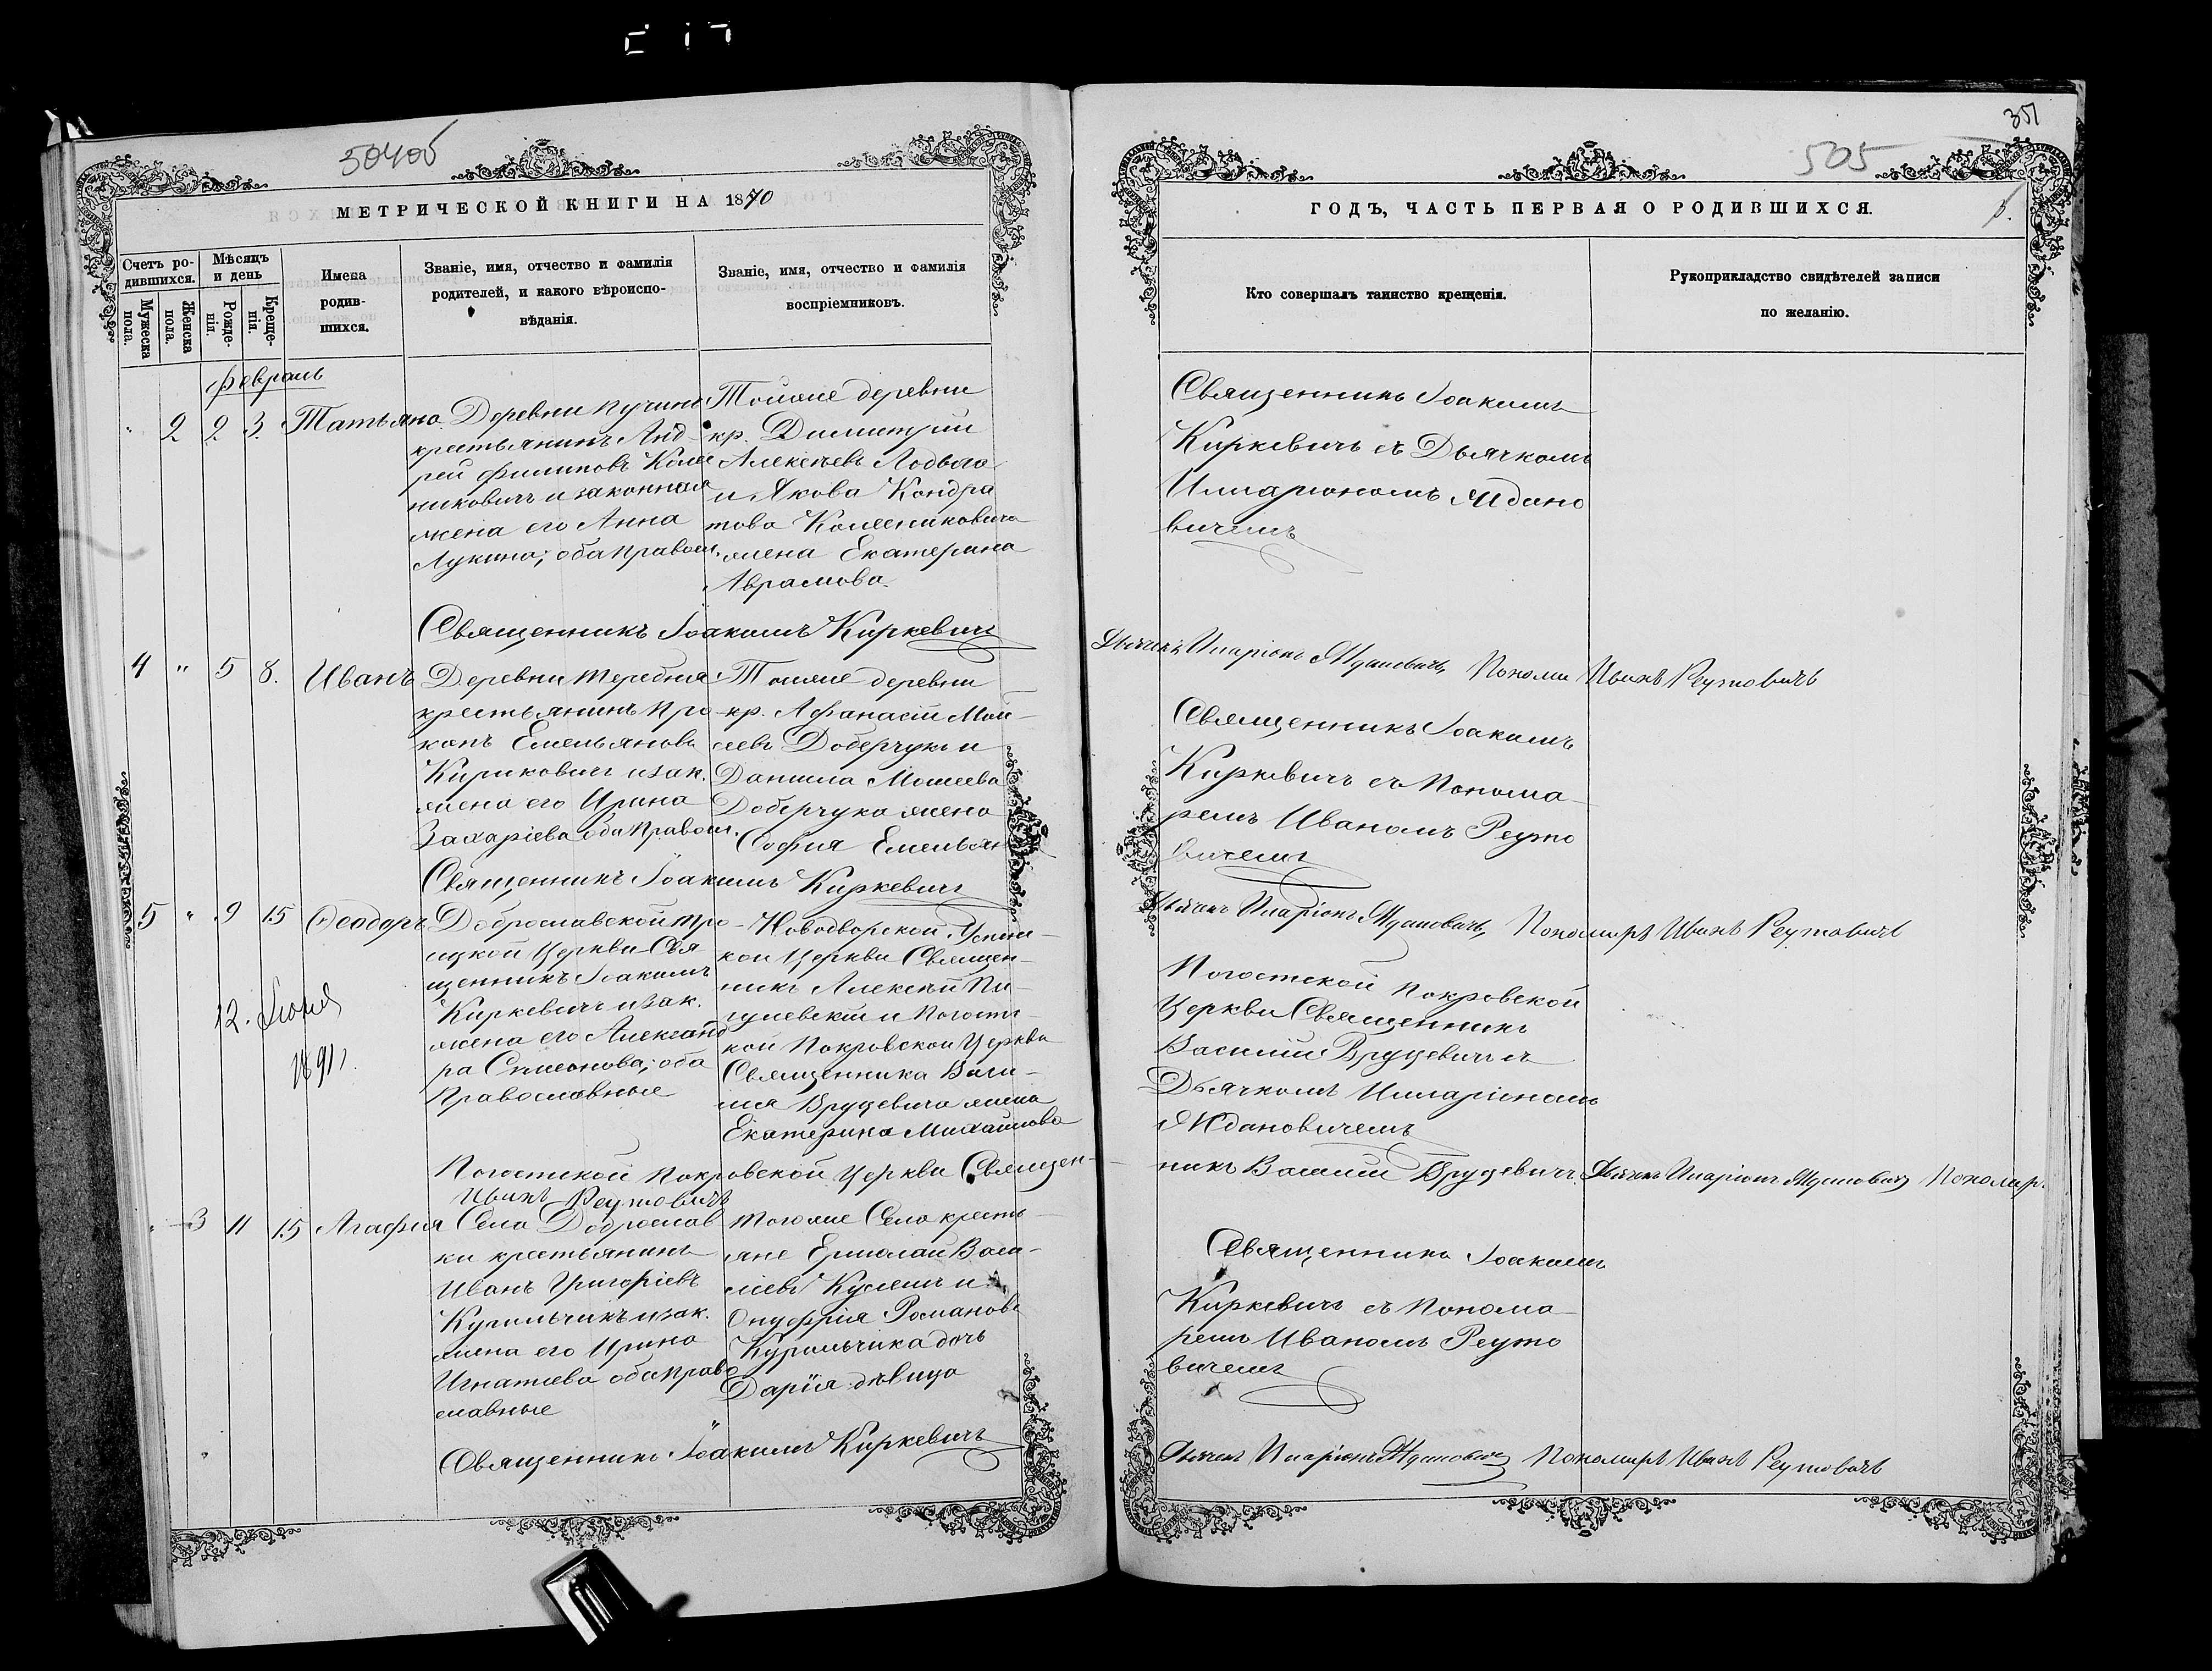 504об
МЕТРИЧЕСКОЙ КНИГИ НА 1870
Счетъ ро-
дившихся.
Мужеска
пола.
Женска
пола.
Мѣсяцъ
и день
Рожде-
нія.
Креще-
нія.
Имена
родив-
шихся.
Званіе, имя, отчество и фамилія
родителей, и какого вѣроиспо-
вѣданія.
Званіе, имя, отчество и фамилія
воспріемниковъ.
февраль
" 2 2 3. Татьяна.
Деревни Пучины
крестьянинъ Анд-
рей Филиповъ Колес
никовичъ и законная
жена его Анна
Лукина; оба правосл.
Тойже деревни
кр. Димитрій
Алексѣевъ
и Якова Кондра
това Колесниковича
жена Екатерина
Аврамова.
Священникъ Іоакимъ Киркевичъ
4 " 5 8. Иванъ
Деревни Теребня
крестьянинъ Про-
копъ Емельяновъ
Кириковичъ и зак.
жена его Ирина
Захаріева оба правосл.
Тойже деревни
кр. Афанасій Мои-
сеевъ Доберчукъ и
Данила Моисеева
Доберчука жена
София Емельян
Священникъ Іоакимъ Киркевичъ
5 " 9 15 Ѳеодоръ
12. Іюня
1891 г.
Доброславской Тро-
ицкой Церкви Свя
щенникъ Іоакимъ
Киркевичъ и зак.
жена его Александ
ра Симеонова; оба
Православные
Новодворской Успен-
кой Церкви Священ-
никъ Алексѣй Пи-
гулевскій и Погост-
кой Покровской Церкви
Священника Васи-
лия Вруцевича жена
Екатерина Михайлова
Погостской Покровской Церкви Священ-
Иванъ Реутовичъ
" 3 11 15 Агафия
Села Доброслав
ки крестьянинъ
Иванъ Григоріевъ
Курильчикъ и зак.
жена его Ирина
Игнатіева оба право
славные
Тогоже Села кресть-
яне Ермолай Васи-
ліевъ Кулешъ и
Онуфрія Романова
Курильчика дочь
Дарія дѣвица
Священникъ Іоакимъ Киркевичъ
351
505
ГОДЪ, ЧАСТЬ ПЕРВАЯ О РОДИВШИХСЯ.
Кто совершалъ таинство крещенія.
Рукоприкладство свидѣтелей записи
по желанію.
Священникъ Іоакимъ
Киркевичъ съ Дьячкомъ
Илларіономъ Ждано
вичемъ
Дьячекъ Иларіонъ Ждановичъ, Поном Иванъ Реутовичъ
Священникъ Іоакимъ
Киркевичъ съ Понома-
ремъ Иваномъ Реуто
вичемъ
Дьячекъ Иларіонъ Ждановичъ, Пономарь Иванъ Реутовичъ
Погостской Покровской
Церкви Священникъ
Василій Вруцевичъ съ
Дьячкомъ Илларіономъ
Ждановичемъ
никъ Василій Вруцевичъ. Дьячекъ Иларіонъ Ждановичъ Пономарь
Священникъ Іоакимъ
Киркевичъ съ Понома-
ремъ Иваномъ Реуто
вичемъ
Дьячекъ Иларіонъ Ждановичъ Пономарь Иванъ Реутовичъ